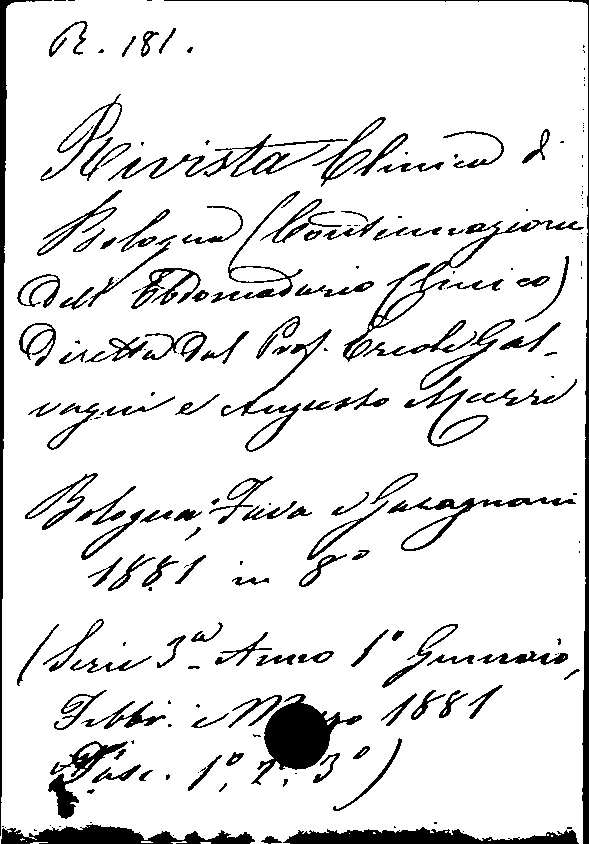 R. 181.
Rivista Clinica di
Bologna (Continuazione
dell' Ebdomadario Clinico)
Diretta dal Prof. Ercole Gal-
vagni e Augusto Murri
Bologna, Fava e Garagnani
1881 in 8°
(Serie 3a Anno 1° Gennaio,
Febbr. e Marzo 1881
Fasc. 1°, 2°, 3°)